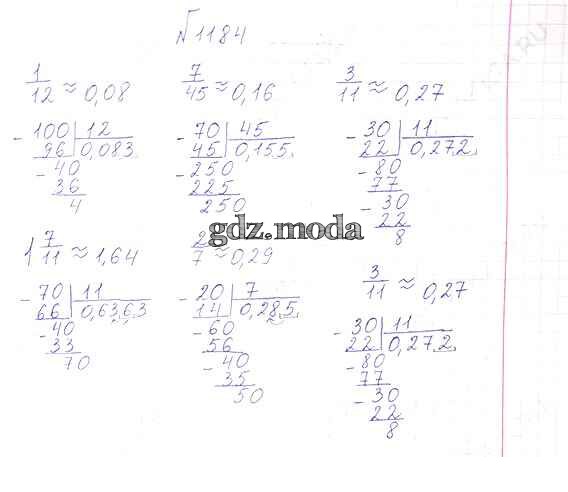 №1184
1/12 ≈ 0,08
7/45 ≈ 0,16
3/11 ≈ 0,27
- 100 | 12
96 | 0,083
- 40
36
4
- 70 | 45
45 | 0,155
- 250
225
250
- 30 | 11
22 | 0,272
- 80
77
- 30
22
8
gdz.moda
1 7/11 ≈ 1,64
2/7 ≈ 0,29
3/11 ≈ 0,27
- 70 | 11
66 | 0,6363
- 40
33
70
- 20 | 7
14 | 0,285
- 60
56
- 40
35
50
- 30 | 11
22 | 0,272
- 80
77
- 30
22
8